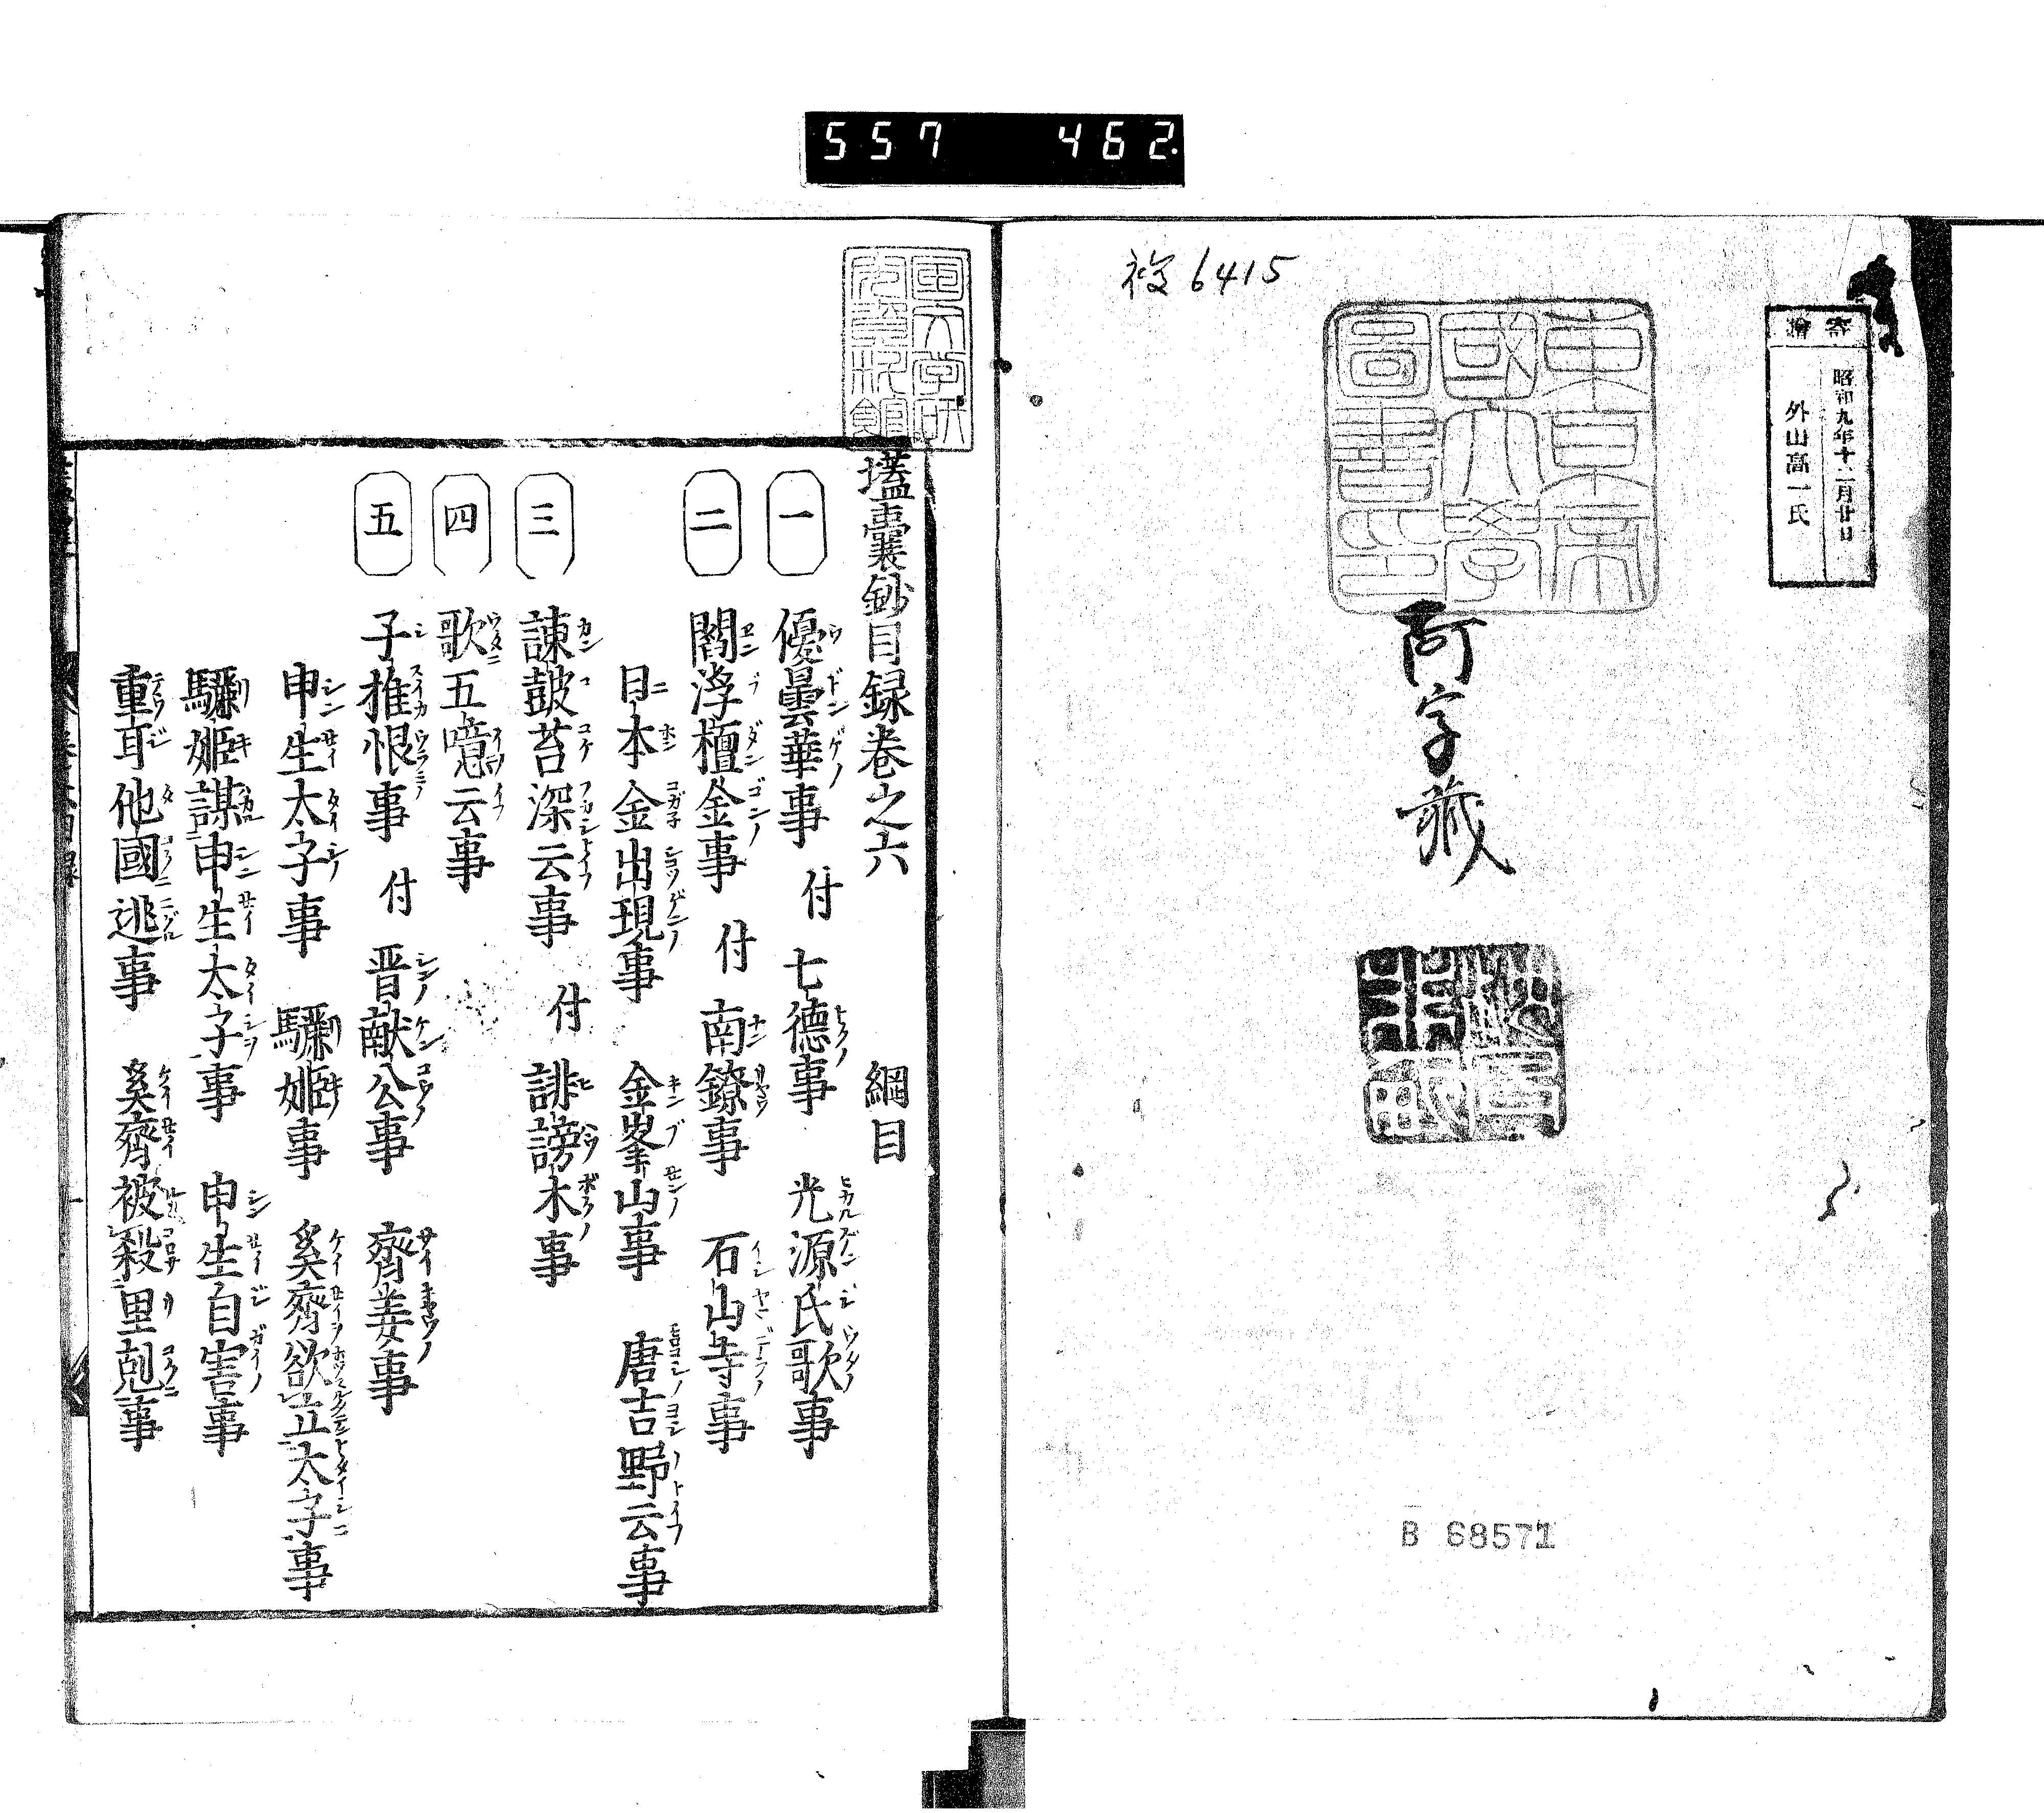 557 462
複6415
寄贈
昭和九年十二月廿日
外山高一氏
東京帝
國大學
圖書印
阿字藏
B 68571
壒囊鈔目録卷之六 綱目
一 優曇華事 付 七德事 光源氏歌事
二 閻浮檀金事 付 南鐐事 石山寺事
日本金出現事 金峯山事 唐吉野云事
三 諫鼓苔深云事 付 誹謗木事
四 歌五噫云事
五 子推恨事 付 晋献公事 齊姜事
申生太子事 驪姬事 奚齊欲立太子事
驪姬謀申生太子事 申生自害事
重耳他國逃事 奚齊被殺里剋事